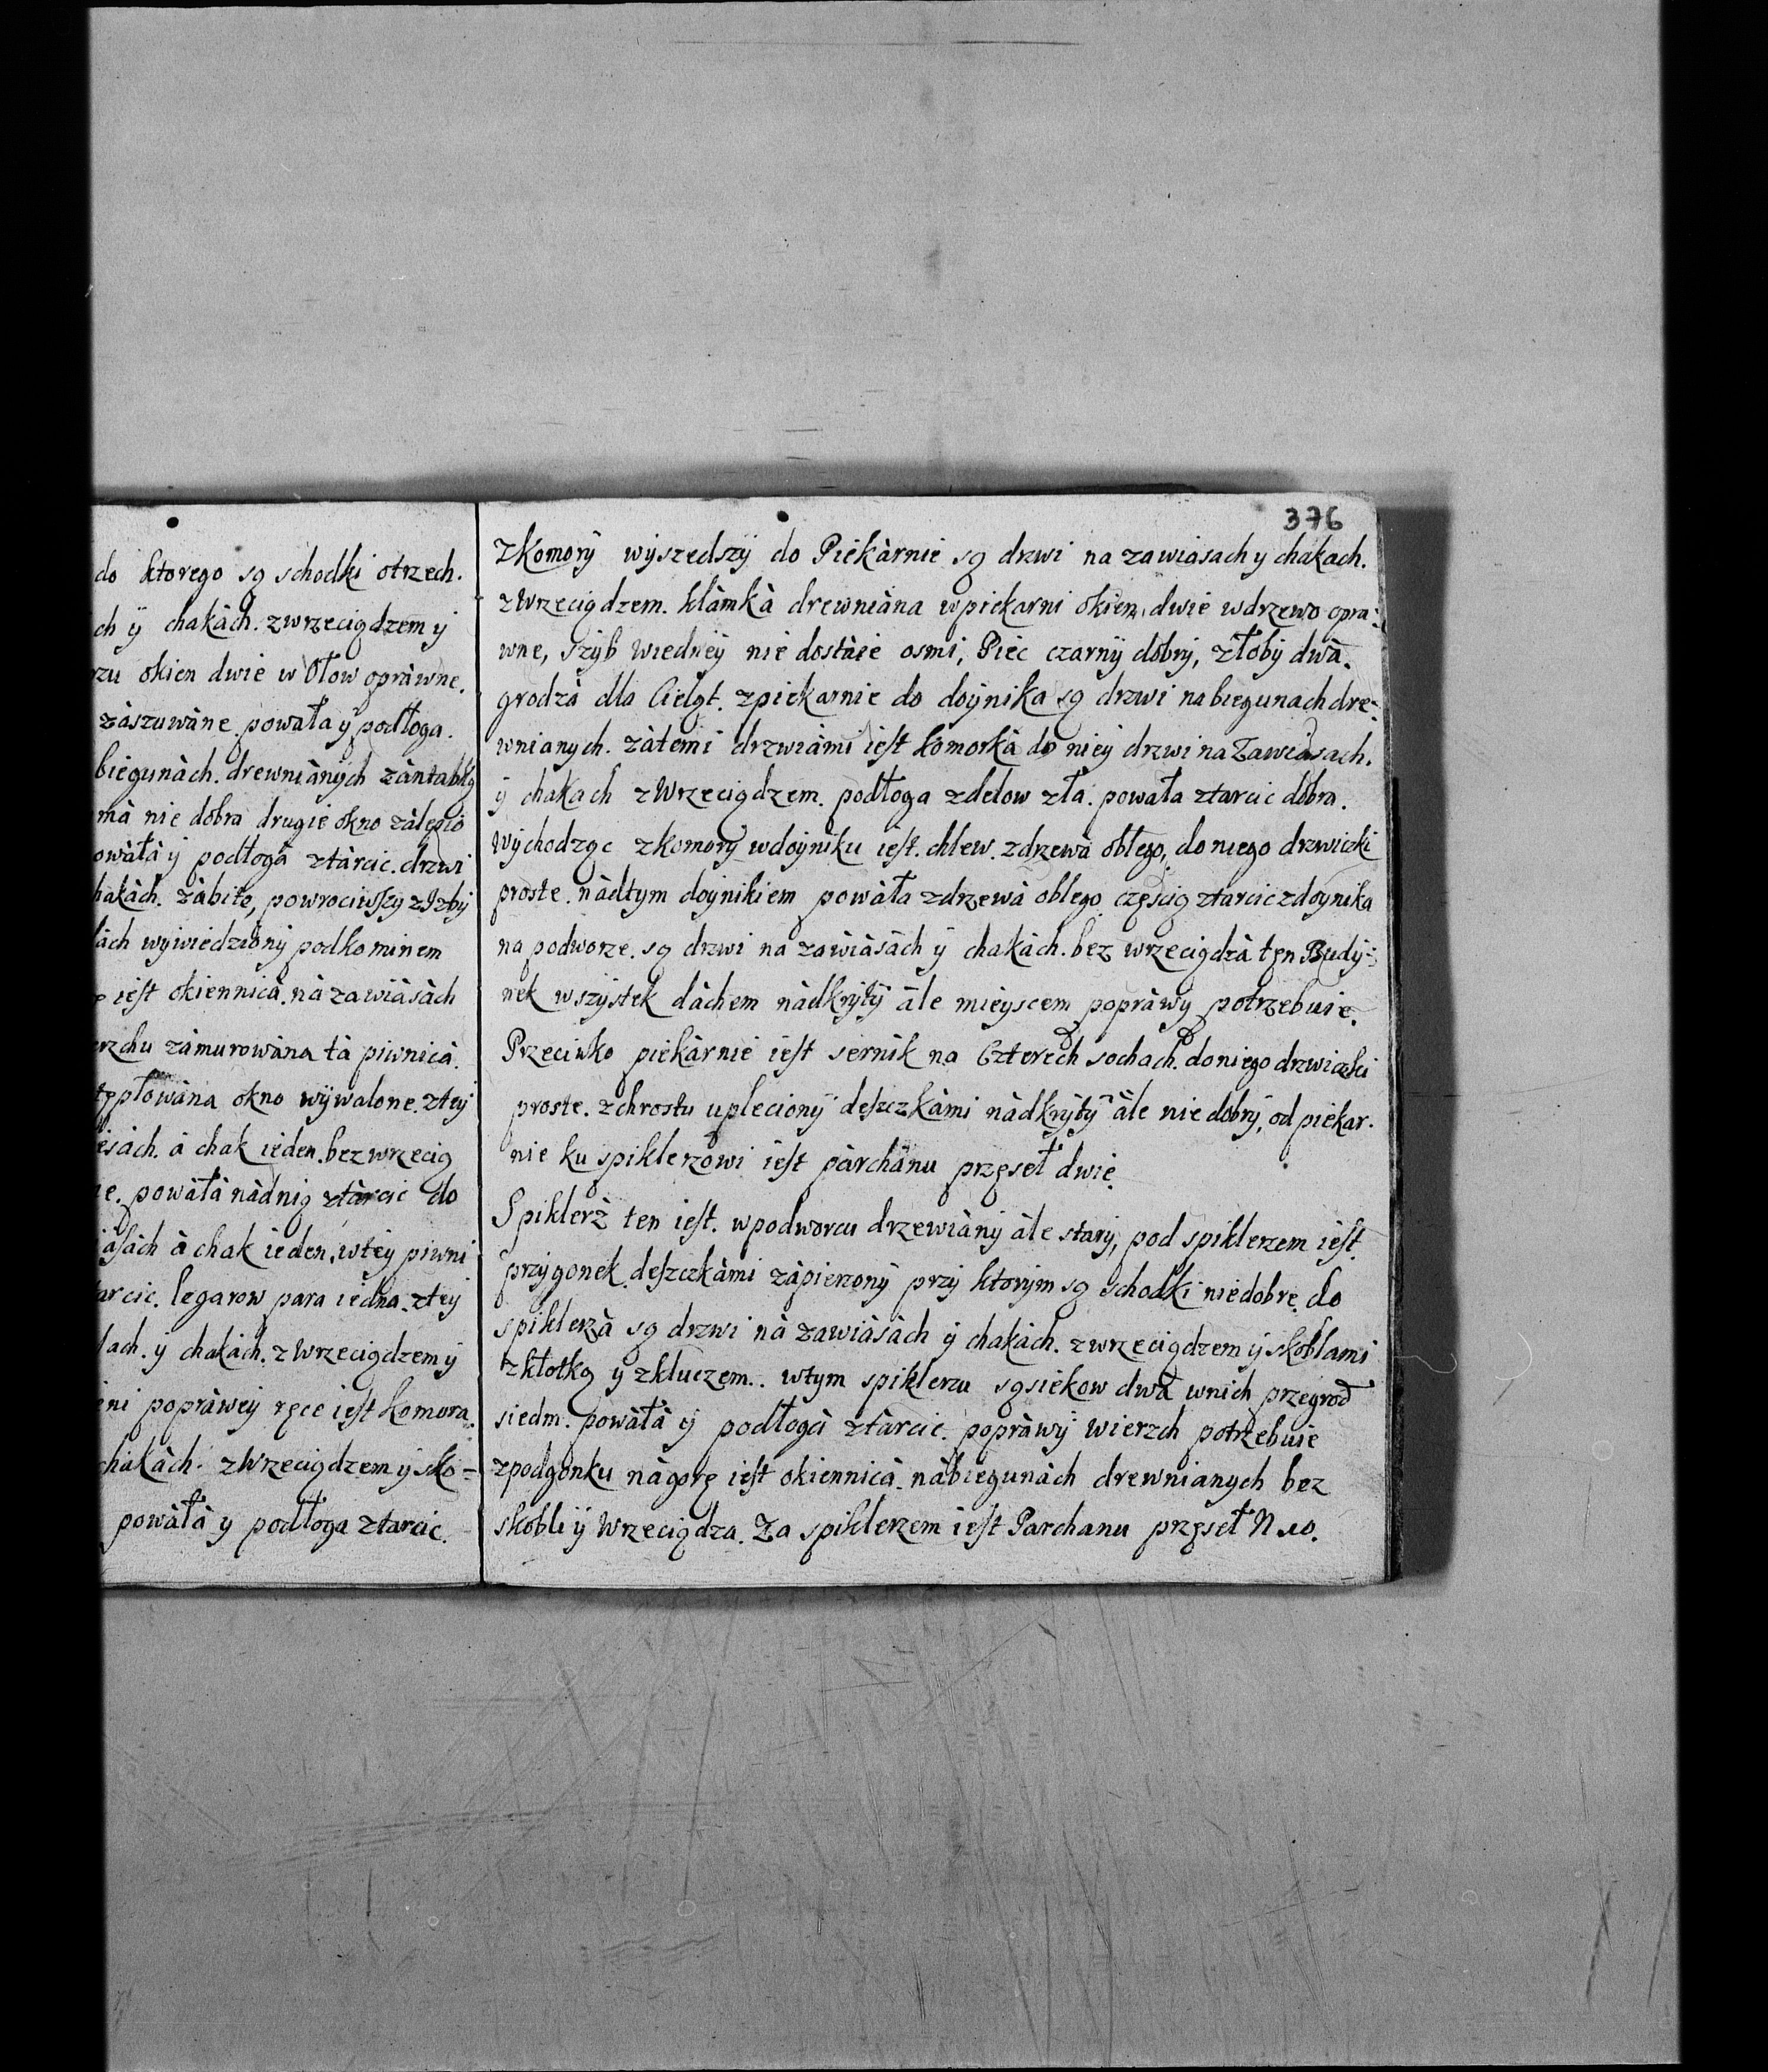 do ktorego są schodki otrzech.
ch ÿ chakàch. zwrzeciądzem ÿ
rzu okien dwie w Ołow opràwne.
zàszuwàne. powała ÿ podłoga.
biegunàch. drewniànÿch zàntabką
mà nie dobra drugie okno zàlepio
owàłà ÿ podłogà ztàrcic. drzwi
hakàch. zàbite, powrociwszy zIzbÿ
làch wÿwiedzionÿ podkominem
iest okiennicà. nà zawiàsàch
erzchu zàmurowàna tà piwnicà.
okno wÿwalone. zteÿ
esàch. à chak ieden. bez wrzecią
ie. powàłà nàdnią ztàrcic do
iàsàch à chak ieden, wteÿ piwni
arcic. legarow para iedna. zteÿ
lach. ÿ chakàch. z Wrzeciądzem ÿ
ni popràweÿ ręce iest komora.
chakàch. zWrzeciądzem ÿ sko=
powàłà ÿ podłoga ztarcic.
376
zKomorÿ wÿszedszÿ do Piekàrnie są drzwi na zawiasach y chakach.
zWrzeciądzem. klàmkà drewniàna wpiekarni okien, dwie wdrzewo opra=
wne, szÿb wiedneÿ nie dostàie osmi, Piec czarnÿ dobrÿ, złobÿ dwà.
grodzà dla Cieląt. zpiekarnie do doÿnika są drzwi na biegunach dre=
wnianych. zàtemi drzwiàmi iest komorkà do nieÿ drzwi na Zawiasach.
ÿ chakach zWrzeciądzem. podłoga zdelow zła. powała ztarcic dobra.
wÿchodząc zkomorÿ wdoÿniku iest. chlew. zdrzewà obłego, do niego drzwiczki
proste. nàdtym doÿnikiem powàła zdrzewà oblego częscią ztarcic zdoynika
na podworze. są drzwi na zawiàsàch ÿ chakàch. bez wrzeciądzà ten Budÿ=
nek wszÿstek dàchem nàdkrÿtÿ àle mieyscem popràwy potrzebuie.
Przeciwko piekàrnie iest sernik na Czterech sochach. do niego drzwiczki
proste. zchrostu uplecionÿ deszczkàmi nàdkrÿtÿ àle nie dobrÿ, od piekar.
nie ku spiklerzowi iest pàrchànu przęseł dwie.
Spiklerz ten iest. wpodworcu drzewiànÿ àle starÿ, pod spiklerzem iest.
przÿgonek. deszczkàmi zàpierzonÿ przÿ ktorÿm są schodki niedobre. do
spiklerzà są drzwi nà zawiàsàch ÿ chakàch. zwrzeciądzem ÿ skoblami
zkłotką y zkluczem.. wtym spiklerzu sąsiekow dwà wnich przegrod
siedm. powàłà ÿ podłogà ztàrcic. popràwÿ wierzch potrzebuie
zpodgonku nàgorę iest okiennicà. nàbiegunàch drewnianych bez
skobli ÿ Wrzeciądza. Za spiklerzem iest Parchanu przęseł N uo.